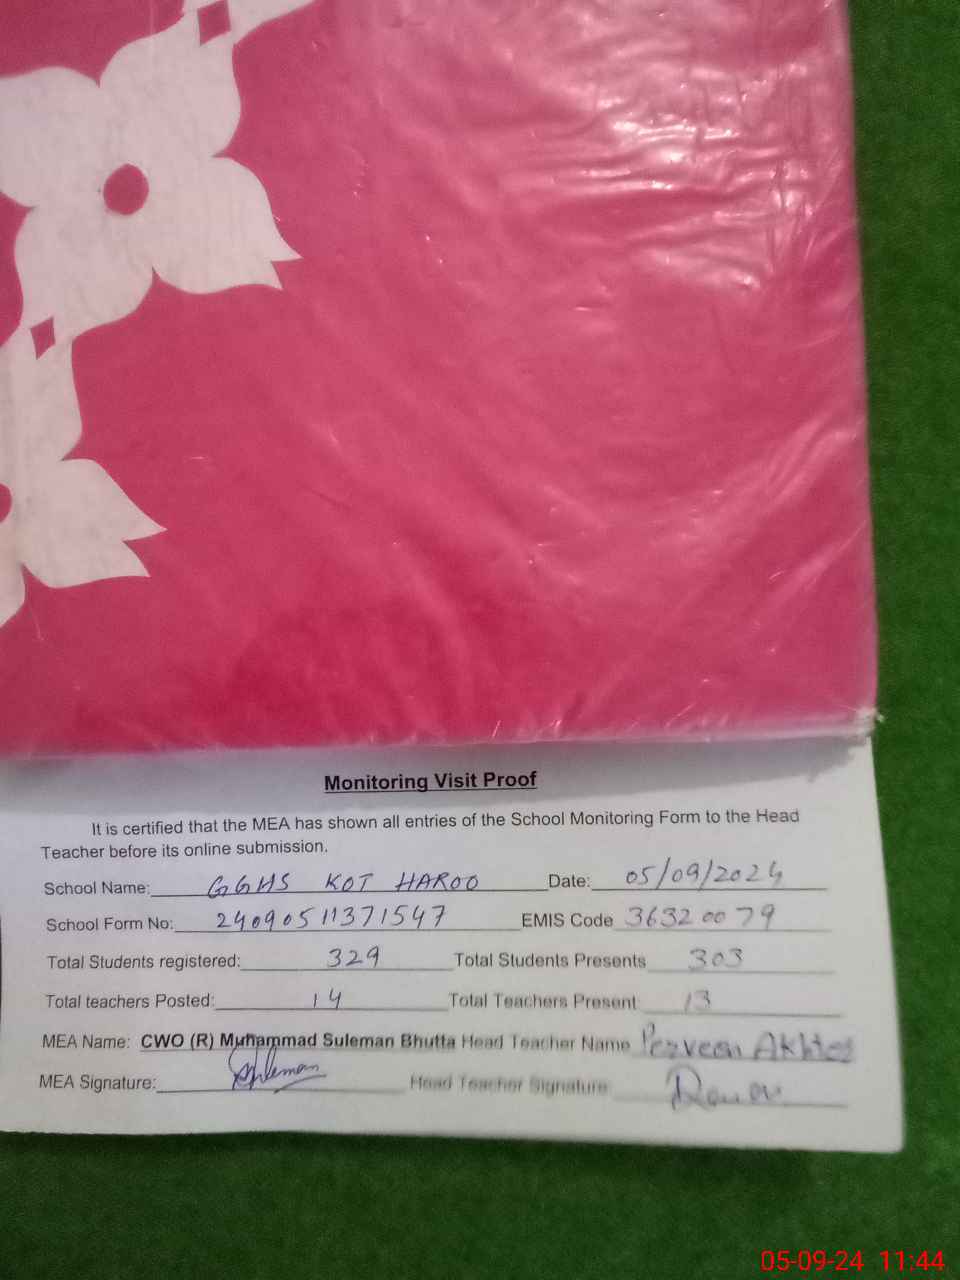 Monitoring Visit Proof
It is certified that the MEA has shown all entries of the School Monitoring Form to the Head
Teacher before its online submission.
School Name: GGHS KOT HAROO Date: 05/09/2024
School Form No: 24090511371547 EMIS Code 36320079
Total Students registered: 329 Total Students Presents 303
Total teachers Posted: 14 Total Teachers Present: 13
MEA Name: CWO (R) Muhammad Suleman Bhutta Head Teacher Name Perveen Akhter
MEA Signature: Suleman Head Teacher Signature:
05-09-24 11:44